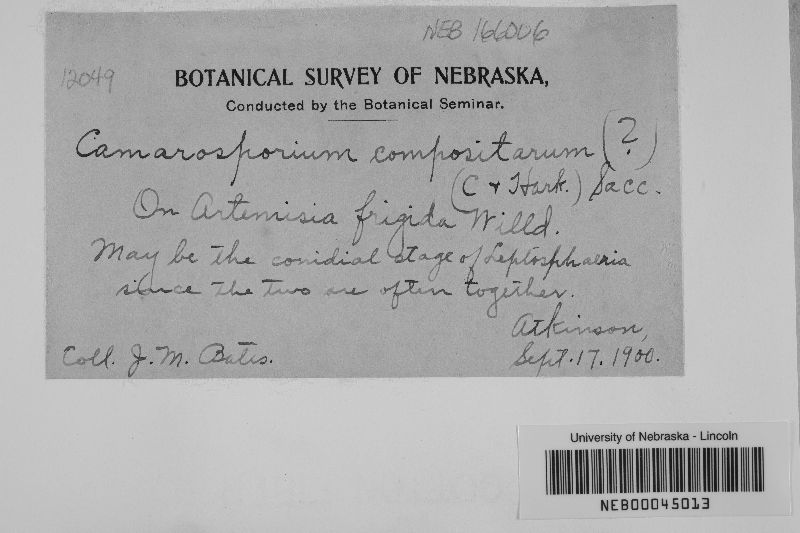 NEB 166006
12049
BOTANICAL SURVEY OF NEBRASKA,
Conducted by the Botanical Seminar.
Camarosporium compositarum (?)
(C & Hark.) Sacc.
On Artemisia frigida Willd.
May be the conidial stage of Leptosphaeria
since the two are often together.
Atkinson,
Coll. J. M. Bates. Sept. 17, 1900.
University of Nebraska - Lincoln
NEB00045013